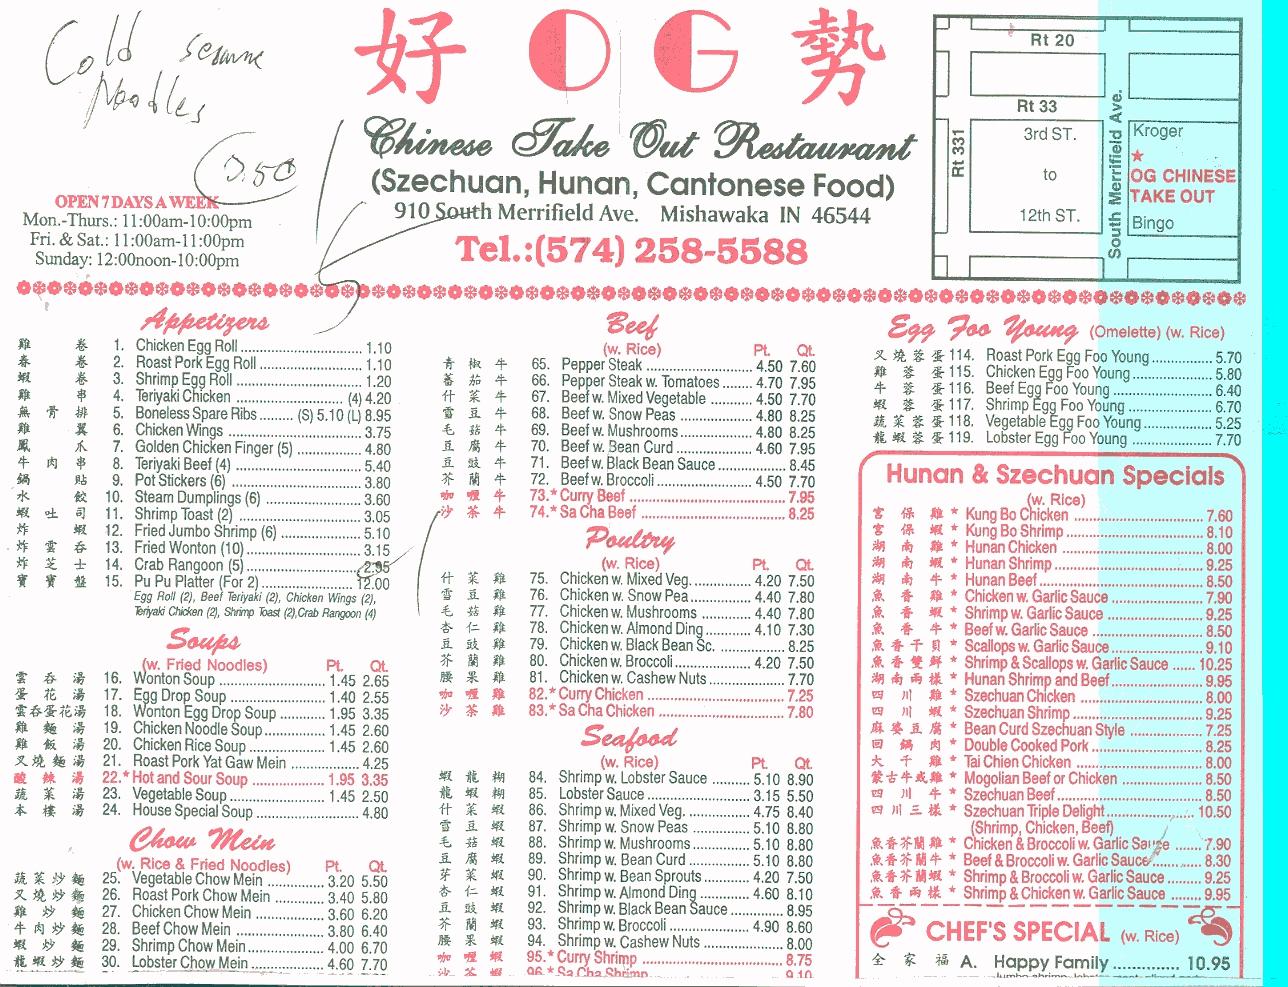 Cold sesame
Noodles
3.50
好 OG 勢
Chinese Take Out Restaurant
(Szechuan, Hunan, Cantonese Food)
910 South Merrifield Ave. Mishawaka IN 46544
Tel.:(574) 258-5588
OPEN 7 DAYS A WEEK
Mon.-Thurs.: 11:00am-10:00pm
Fri. & Sat.: 11:00am-11:00pm
Sunday: 12:00noon-10:00pm
Rt 20
Rt 33
Rt 331
3rd ST.
to
12th ST.
South Merrifield Ave.
Kroger
★
OG CHINESE
TAKE OUT
Bingo
Appetizers
雞卷 1. Chicken Egg Roll ... 1.10
春卷 2. Roast Pork Egg Roll ... 1.10
蝦卷 3. Shrimp Egg Roll ... 1.20
雞串 4. Teriyaki Chicken ... (4) 4.20
無骨排 5. Boneless Spare Ribs ... (S) 5.10 (L) 8.95
雞翼 6. Chicken Wings ... 3.75
鳳爪 7. Golden Chicken Finger (5) ... 4.80
牛肉串 8. Teriyaki Beef (4) ... 5.40
鍋貼 9. Pot Stickers (6) ... 3.80
水餃 10. Steam Dumplings (6) ... 3.60
蝦吐司 11. Shrimp Toast (2) ... 3.05
炸蝦 12. Fried Jumbo Shrimp (6) ... 5.10
炸雲吞 13. Fried Wonton (10) ... 3.15
炸芝士 14. Crab Rangoon (5) ... 2.95
寶寶盤 15. Pu Pu Platter (For 2) ... 12.00
Egg Roll (2), Beef Teriyaki (2), Chicken Wings (2),
Teriyaki Chicken (2), Shrimp Toast (2), Crab Rangoon (4)
Soups
(w. Fried Noodles) Pt. Qt.
雲吞湯 16. Wonton Soup ... 1.45 2.65
蛋花湯 17. Egg Drop Soup ... 1.40 2.55
雲吞蛋花湯 18. Wonton Egg Drop Soup ... 1.95 3.35
雞麵湯 19. Chicken Noodle Soup ... 1.45 2.60
雞飯湯 20. Chicken Rice Soup ... 1.45 2.60
叉燒麵湯 21. Roast Pork Yat Gaw Mein ... 4.25
酸辣湯 22.* Hot and Sour Soup ... 1.95 3.35
蔬菜湯 23. Vegetable Soup ... 1.45 2.50
本樓湯 24. House Special Soup ... 4.80
Chow Mein
(w. Rice & Fried Noodles) Pt. Qt.
蔬菜炒麵 25. Vegetable Chow Mein ... 3.20 5.50
叉燒炒麵 26. Roast Pork Chow Mein ... 3.40 5.80
雞炒麵 27. Chicken Chow Mein ... 3.60 6.20
牛肉炒麵 28. Beef Chow Mein ... 3.80 6.40
蝦炒麵 29. Shrimp Chow Mein ... 4.00 6.70
龍蝦炒麵 30. Lobster Chow Mein ... 4.60 7.70
Beef
(w. Rice) Pt. Qt.
青椒牛 65. Pepper Steak ... 4.50 7.60
蕃茄牛 66. Pepper Steak w. Tomatoes ... 4.70 7.95
什菜牛 67. Beef w. Mixed Vegetable ... 4.50 7.70
雪豆牛 68. Beef w. Snow Peas ... 4.80 8.25
毛菇牛 69. Beef w. Mushrooms ... 4.80 8.25
豆腐牛 70. Beef w. Bean Curd ... 4.60 7.95
豆豉牛 71. Beef w. Black Bean Sauce ... 8.45
芥蘭牛 72. Beef w. Broccoli ... 4.50 7.70
咖喱牛 73.* Curry Beef ... 7.95
沙茶牛 74.* Sa Cha Beef ... 8.25
Poultry
(w. Rice) Pt. Qt.
什菜雞 75. Chicken w. Mixed Veg. ... 4.20 7.50
雪豆雞 76. Chicken w. Snow Pea ... 4.40 7.80
毛菇雞 77. Chicken w. Mushrooms ... 4.40 7.80
杏仁雞 78. Chicken w. Almond Ding ... 4.10 7.30
豆豉雞 79. Chicken w. Black Bean Sc. ... 8.25
芥蘭雞 80. Chicken w. Broccoli ... 4.20 7.50
腰果雞 81. Chicken w. Cashew Nuts ... 7.70
咖喱雞 82.* Curry Chicken ... 7.25
沙茶雞 83.* Sa Cha Chicken ... 7.80
Seafood
(w. Rice) Pt. Qt.
蝦龍糊 84. Shrimp w. Lobster Sauce ... 5.10 8.90
龍蝦糊 85. Lobster Sauce ... 3.15 5.50
什菜蝦 86. Shrimp w. Mixed Veg. ... 4.75 8.40
雪豆蝦 87. Shrimp w. Snow Peas ... 5.10 8.80
毛菇蝦 88. Shrimp w. Mushrooms ... 5.10 8.80
豆腐蝦 89. Shrimp w. Bean Curd ... 5.10 8.80
芽菜蝦 90. Shrimp w. Bean Sprouts ... 4.20 7.50
杏仁蝦 91. Shrimp w. Almond Ding ... 4.60 8.10
豆豉蝦 92. Shrimp w. Black Bean Sauce ... 8.95
芥蘭蝦 93. Shrimp w. Broccoli ... 4.90 8.60
腰果蝦 94. Shrimp w. Cashew Nuts ... 8.00
咖喱蝦 95.* Curry Shrimp ... 8.75
沙茶蝦 96.* Sa Cha Shrimp ... 9.10
Egg Foo Young (Omelette) (w. Rice)
叉燒蓉蛋 114. Roast Pork Egg Foo Young ... 5.70
雞蓉蛋 115. Chicken Egg Foo Young ... 5.80
牛蓉蛋 116. Beef Egg Foo Young ... 6.40
蝦蓉蛋 117. Shrimp Egg Foo Young ... 6.70
蔬菜蓉蛋 118. Vegetable Egg Foo Young ... 5.25
龍蝦蓉蛋 119. Lobster Egg Foo Young ... 7.70
Hunan & Szechuan Specials
(w. Rice)
宮保雞 * Kung Bo Chicken ... 7.60
宮保蝦 * Kung Bo Shrimp ... 8.10
湖南雞 * Hunan Chicken ... 8.00
湖南蝦 * Hunan Shrimp ... 9.25
湖南牛 * Hunan Beef ... 8.50
魚香雞 * Chicken w. Garlic Sauce ... 7.90
魚香蝦 * Shrimp w. Garlic Sauce ... 9.25
魚香牛 * Beef w. Garlic Sauce ... 8.50
魚香干貝 * Scallops w. Garlic Sauce ... 9.10
魚香雙鮮 * Shrimp & Scallops w. Garlic Sauce ... 10.25
湖南兩樣 * Hunan Shrimp and Beef ... 9.95
四川雞 * Szechuan Chicken ... 8.00
四川蝦 * Szechuan Shrimp ... 9.25
麻婆豆腐 * Bean Curd Szechuan Style ... 7.25
回鍋肉 * Double Cooked Pork ... 8.25
大千雞 * Tai Chien Chicken ... 8.00
蒙古牛或雞 * Mogolian Beef or Chicken ... 8.50
四川牛 * Szechuan Beef ... 8.50
四川三樣 * Szechuan Triple Delight ... 10.50
(Shrimp, Chicken, Beef)
魚香芥蘭雞 * Chicken & Broccoli w. Garlic Sauce ... 7.90
魚香芥蘭牛 * Beef & Broccoli w. Garlic Sauce ... 8.30
魚香芥蘭蝦 * Shrimp & Broccoli w. Garlic Sauce ... 9.25
魚香兩樣 * Shrimp & Chicken w. Garlic Sauce ... 9.95
CHEF'S SPECIAL (w. Rice)
全家福 A. Happy Family ... 10.95